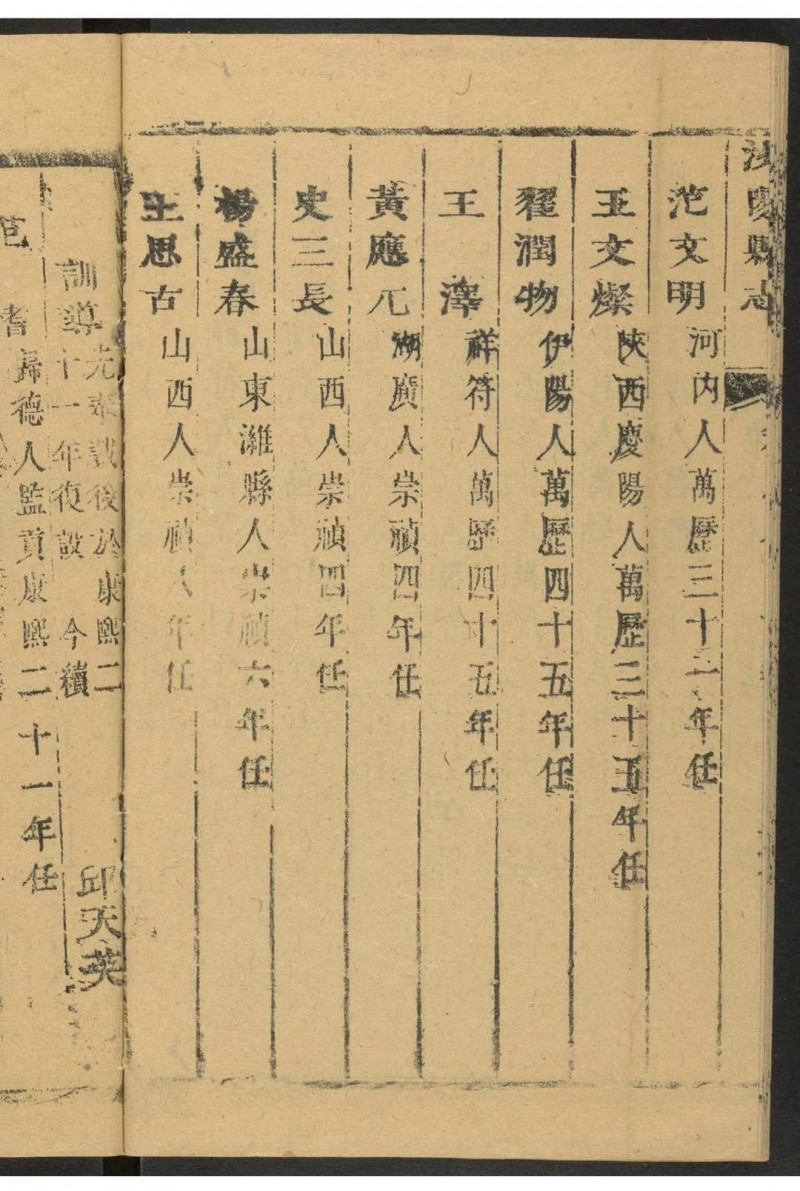 陽縣志
范文明 河内人萬歷三十二年任
王文燦 陝西慶陽人萬歷三十五年任
翟潤物 伊陽人萬歷四十五年任
王 澤 祥符人萬歷四十五年任
黃應元 湖廣人崇禎四年任
史三長 山西人崇禎四年任
楊盛春 山東濰縣人崇禎六年任
王思古 山西人崇禎八年任
訓導 裁後於康熙二
十一年復設 今續
歸德人監貢康熙二十一年任
邱天英